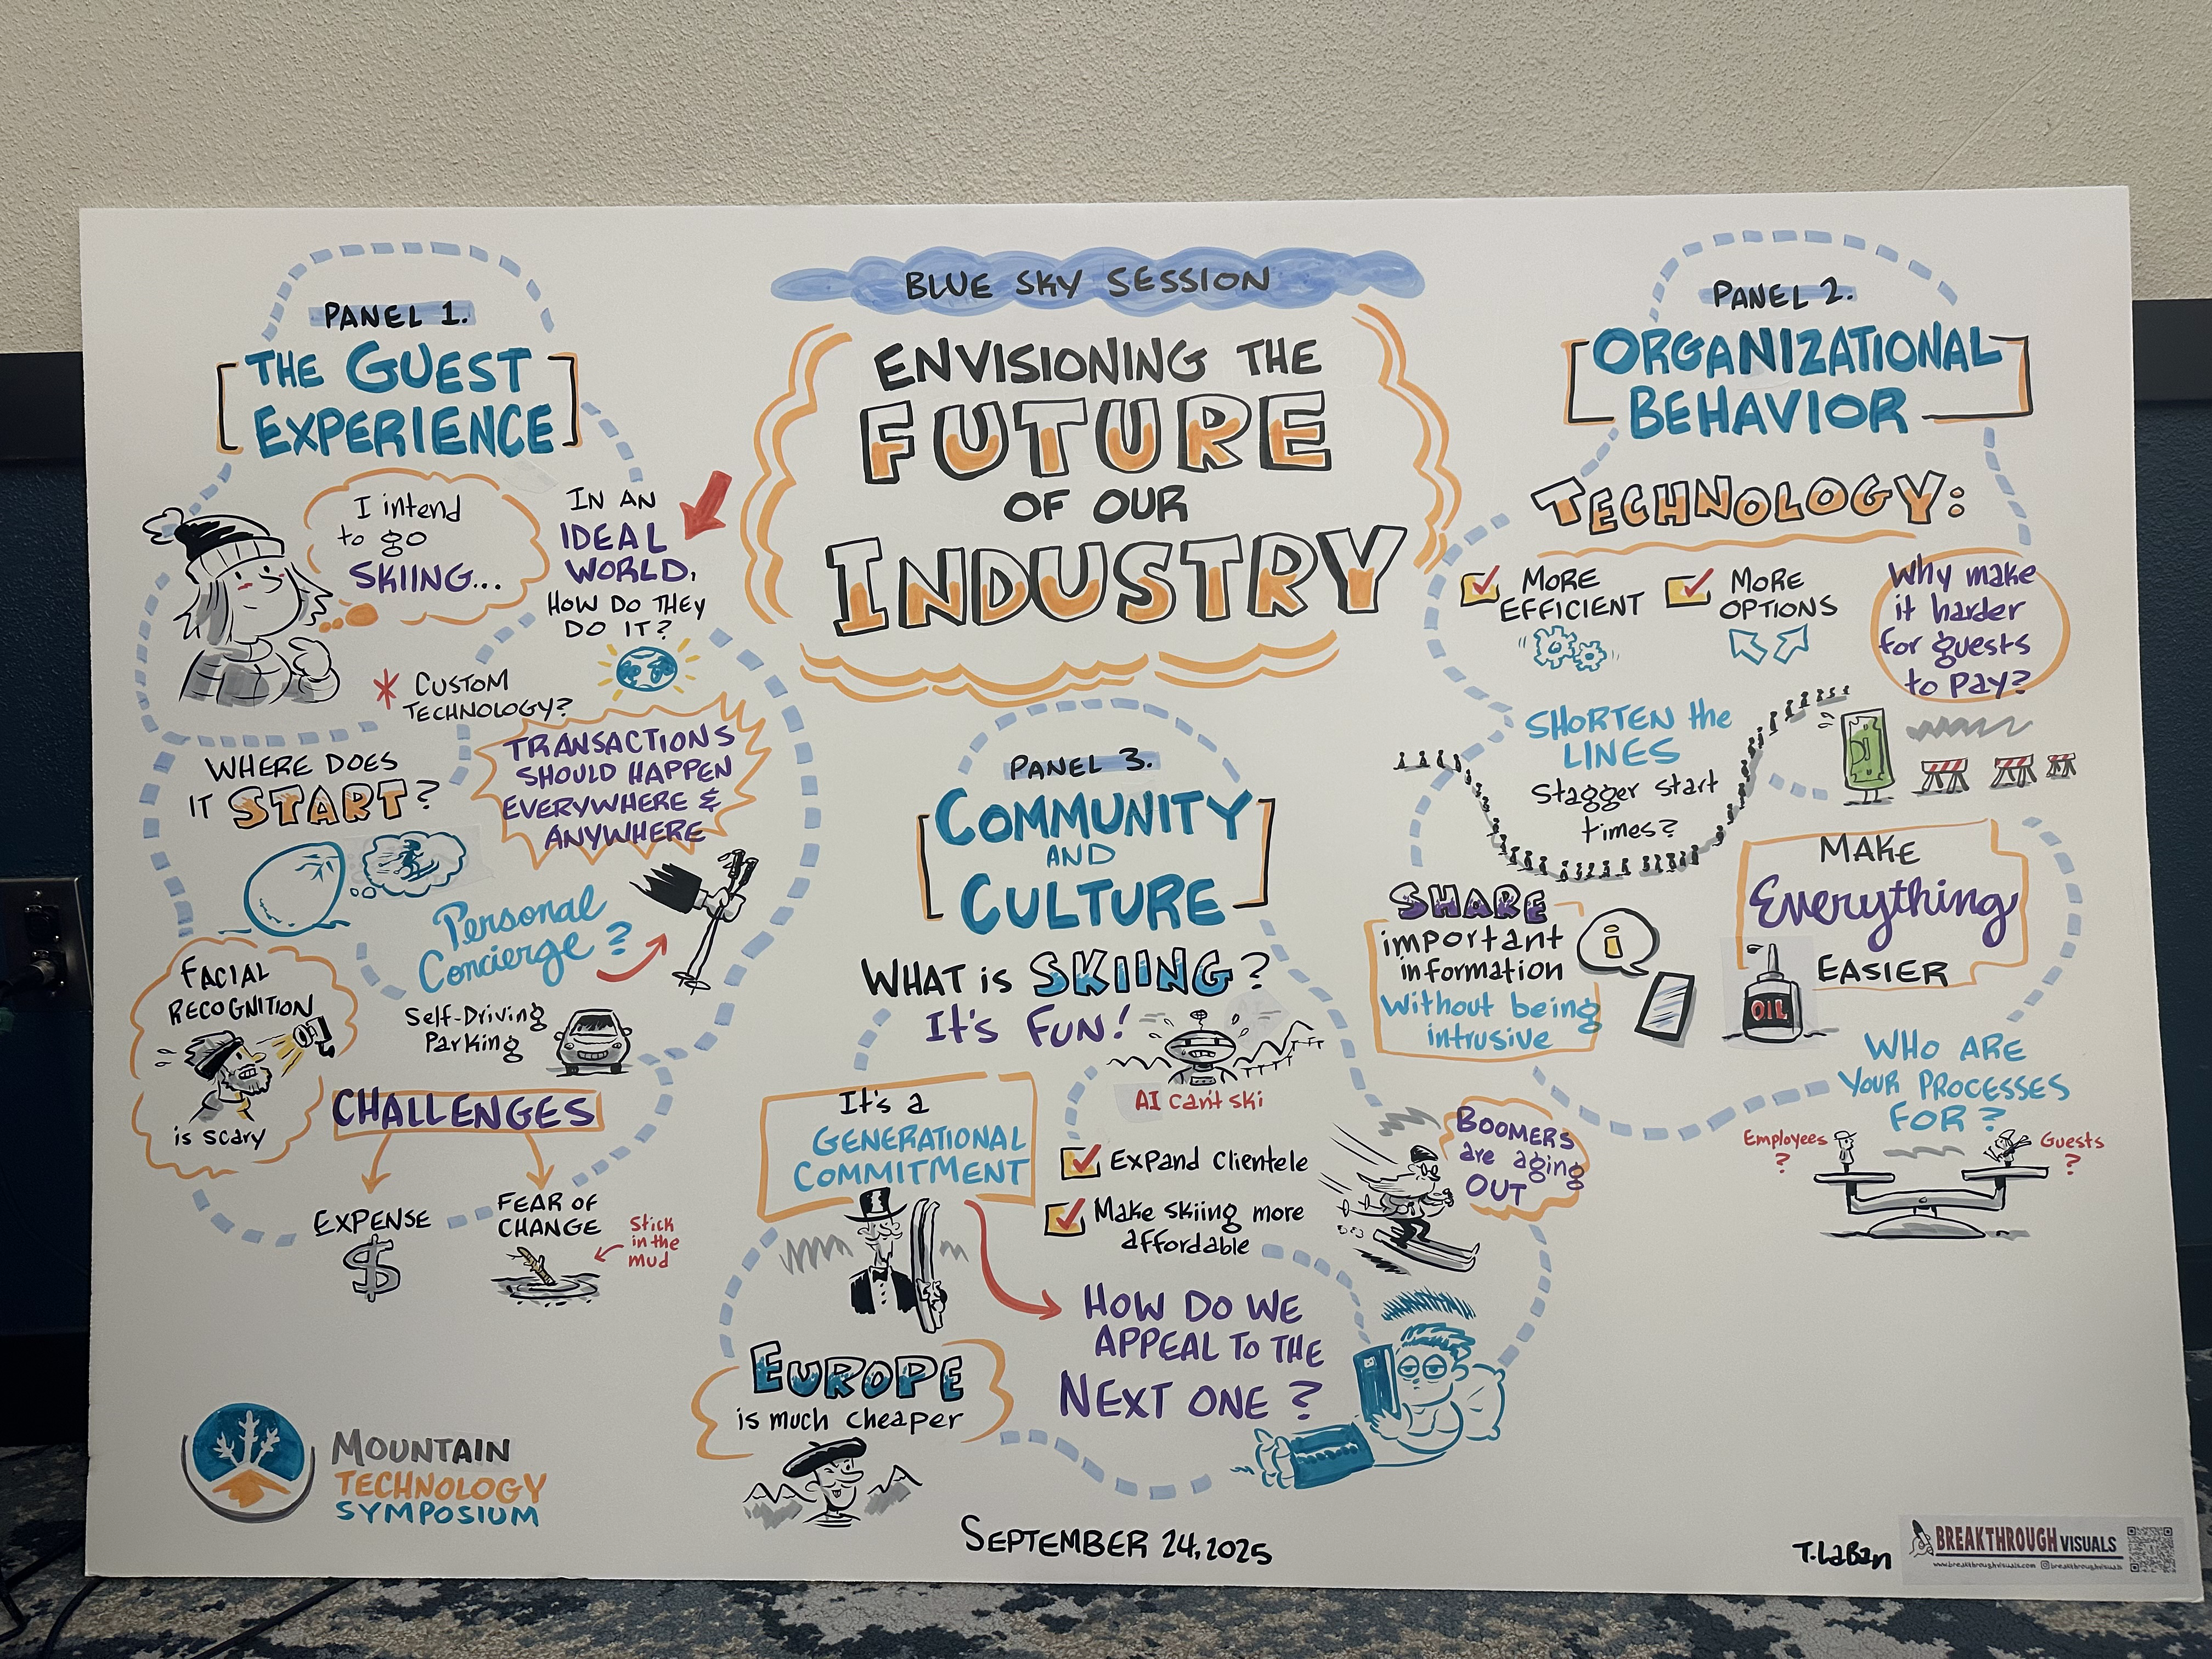 BLUE SKY SESSION
ENVISIONING THE
FUTURE
OF OUR
INDUSTRY
PANEL 1.
THE GUEST
EXPERIENCE
I intend
to go
SKIING...
IN AN
IDEAL
WORLD,
HOW DO THEY
DO IT?
* CUSTOM
TECHNOLOGY?
WHERE DOES
IT START?
TRANSACTIONS
SHOULD HAPPEN
EVERYWHERE &
ANYWHERE
Personal
Concierge?
Self-Driving
Parking
FACIAL
RECOGNITION
is scary
CHALLENGES
EXPENSE
$
FEAR OF
CHANGE
Stick
in the
mud
PANEL 2.
ORGANIZATIONAL
BEHAVIOR
TECHNOLOGY:
MORE
EFFICIENT
MORE
OPTIONS
Why make
it harder
for guests
to pay?
SHORTEN the
LINES
Stagger start
times?
SHARE
important
information
Without being
intrusive
i
MAKE
Everything
EASIER
OIL
WHO ARE
YOUR PROCESSES
FOR?
Employees
?
Guests
?
PANEL 3.
COMMUNITY
AND
CULTURE
WHAT is SKIING?
IT'S FUN!
AI can't ski
It's a
GENERATIONAL
COMMITMENT
Expand Clientele
Make skiing more
affordable
BOOMERS
are aging
OUT
HOW DO WE
APPEAL TO THE
NEXT ONE?
EUROPE
is much cheaper
MOUNTAIN
TECHNOLOGY
SYMPOSIUM
SEPTEMBER 24, 2025
T. LaBan
BREAKTHROUGH VISUALS
www.breakthroughvisuals.com @breakthroughvisuals